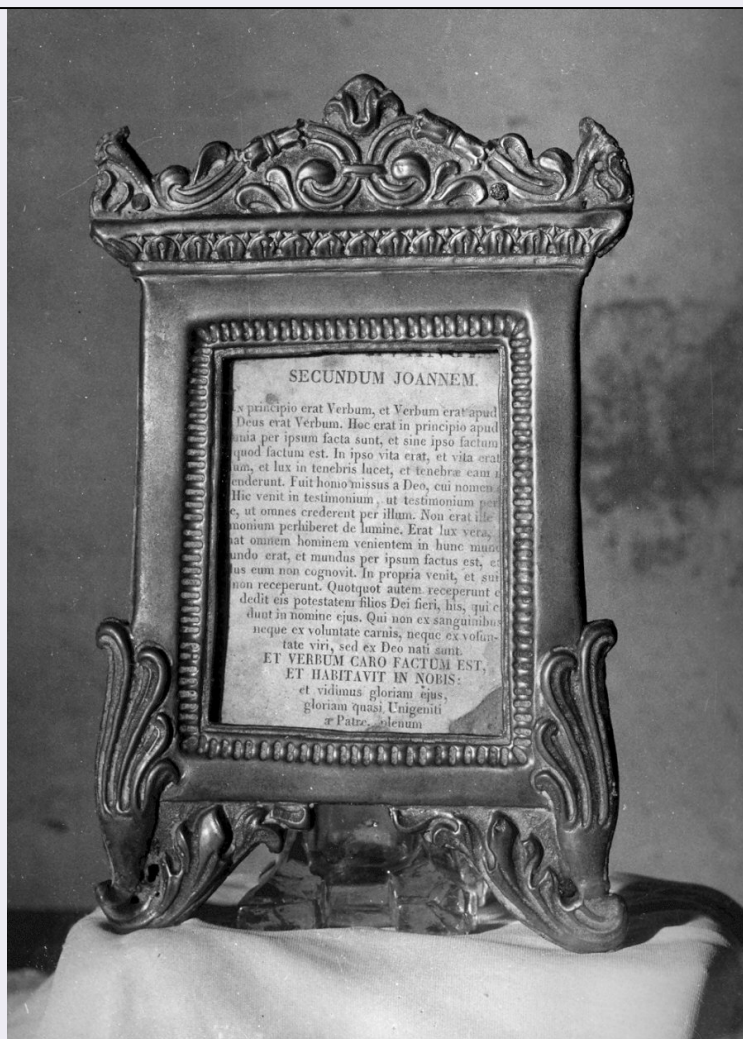 SECUNDUM JOANNEM.
principio erat Verbum, et Verbum erat apud
Deus erat Verbum. Hoc erat in principio apud
nia per ipsum facta sunt, et sine ipso factum
quod factum est. In ipso vita erat, et vita erat
um, et lux in tenebris lucet, et tenebræ eam
enderunt. Fuit homo missus a Deo, cui nomen
Hic venit in testimonium, ut testimonium per
e, ut omnes crederent per illum. Non erat ille
monium perhiberet de lumine. Erat lux vera,
at omnem hominem venientem in hunc mun
undo erat, et mundus per ipsum factus est, e
us eum non cognovit. In propria venit, et sui
non receperunt. Quotquot autem receperunt e
dedit eis potestatem filios Dei fieri, his, qui c
dunt in nomine ejus. Qui non ex sanguinibus
neque ex voluntate carnis, neque ex volun-
tate viri, sed ex Deo nati sunt.
ET VERBUM CARO FACTUM EST,
ET HABITAVIT IN NOBIS:
et vidimus gloriam ejus,
gloriam quasi Unigeniti
æ Patre, plenum